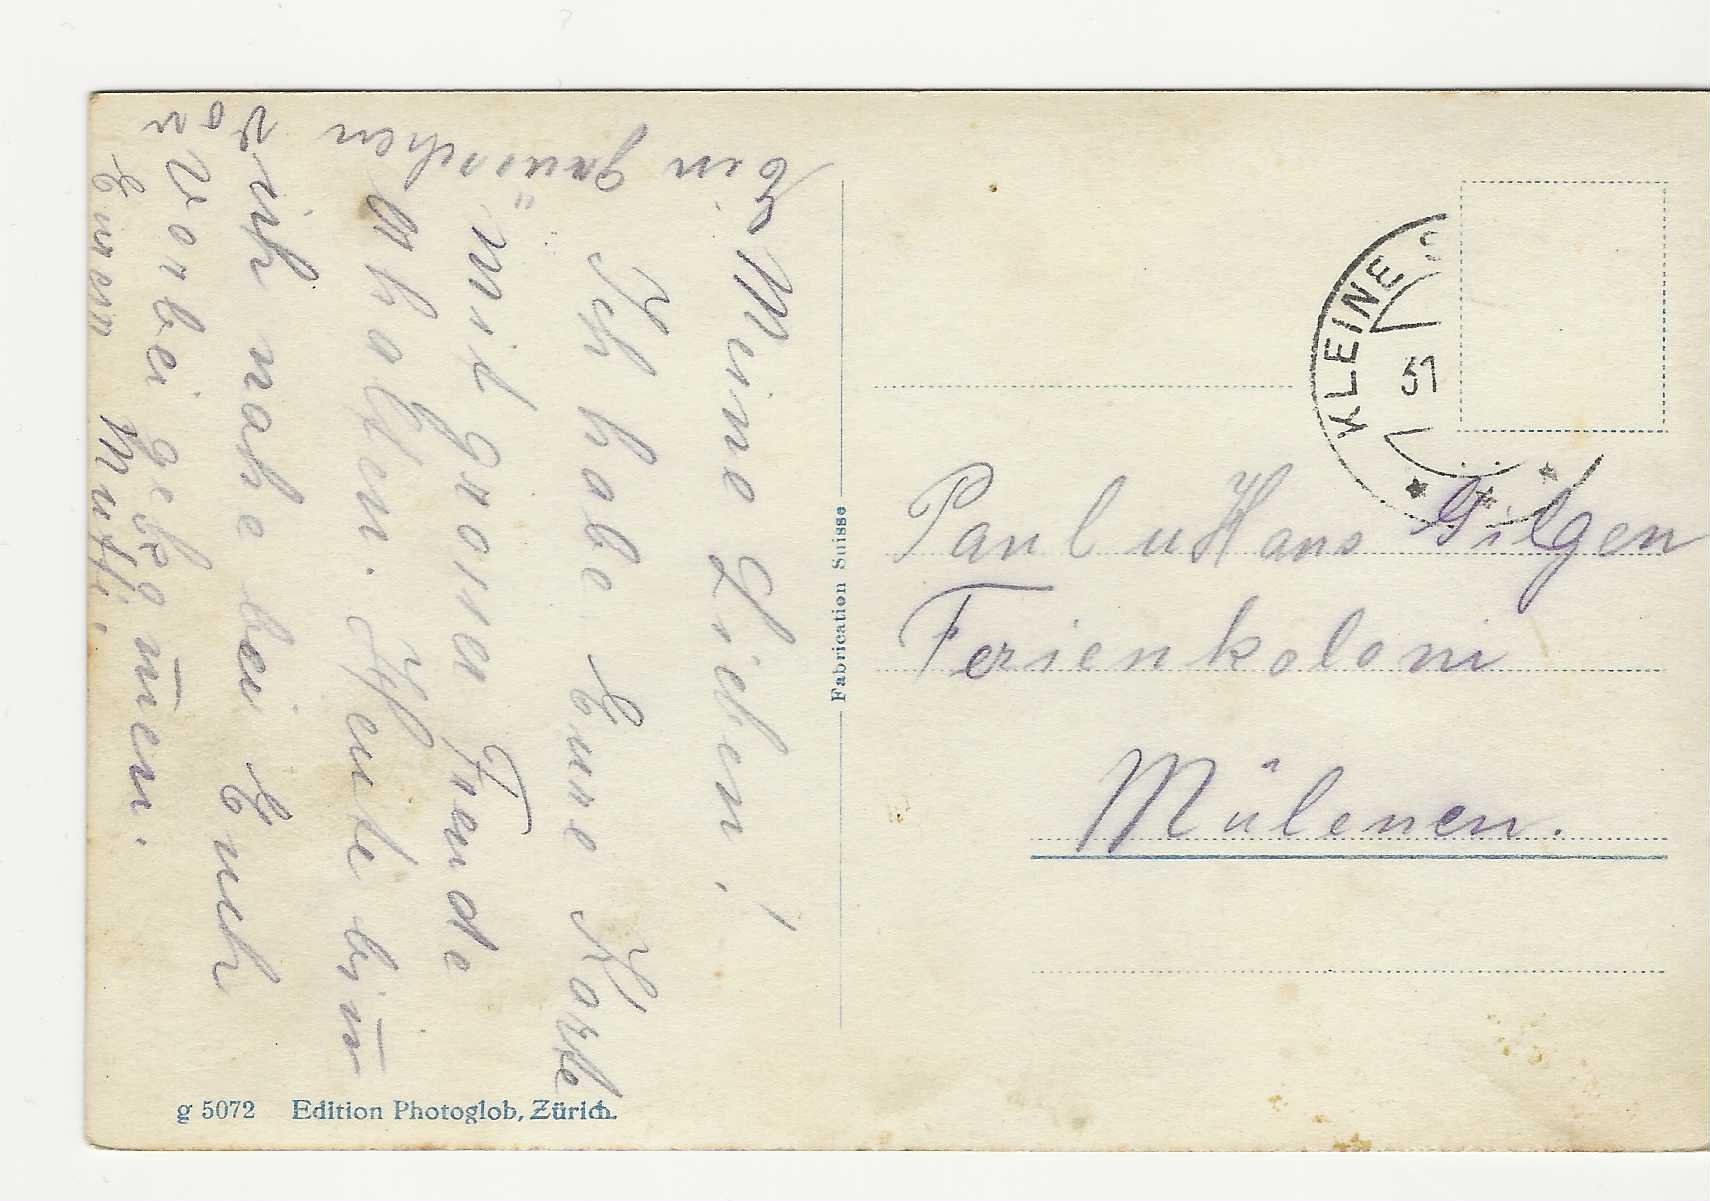 Meine Lieben!
Ich habe Eure Karte
mit grosser Freude
erhalten. Heute bin
ich nahe bei Euch
vorbei gekomen.
Ein Grüsschen
von
Eurem Mutti.
Paul u Hans Gilgen
Ferienkoloni
Mülenen.
KLEINE S
31
Fabrication Suisse
g 5072 Edition Photoglob, Zürich.